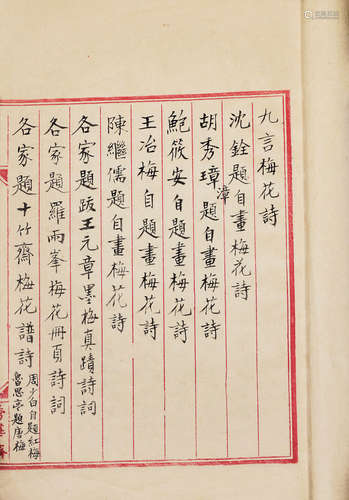 九言梅花詩
沈銓題自畫梅花詩
胡秀璋題自畫梅花詩
漳
鮑筱安自題畫梅花詩
王冶梅自題畫梅花詩
陳繼儒題自畫梅花詩
各家題跋王元章墨梅真蹟詩詞
各家題羅雨峯梅花冊頁詩詞
各家題十竹齋梅花譜詩
周少白自題紅梅
魯思亭題唐梅